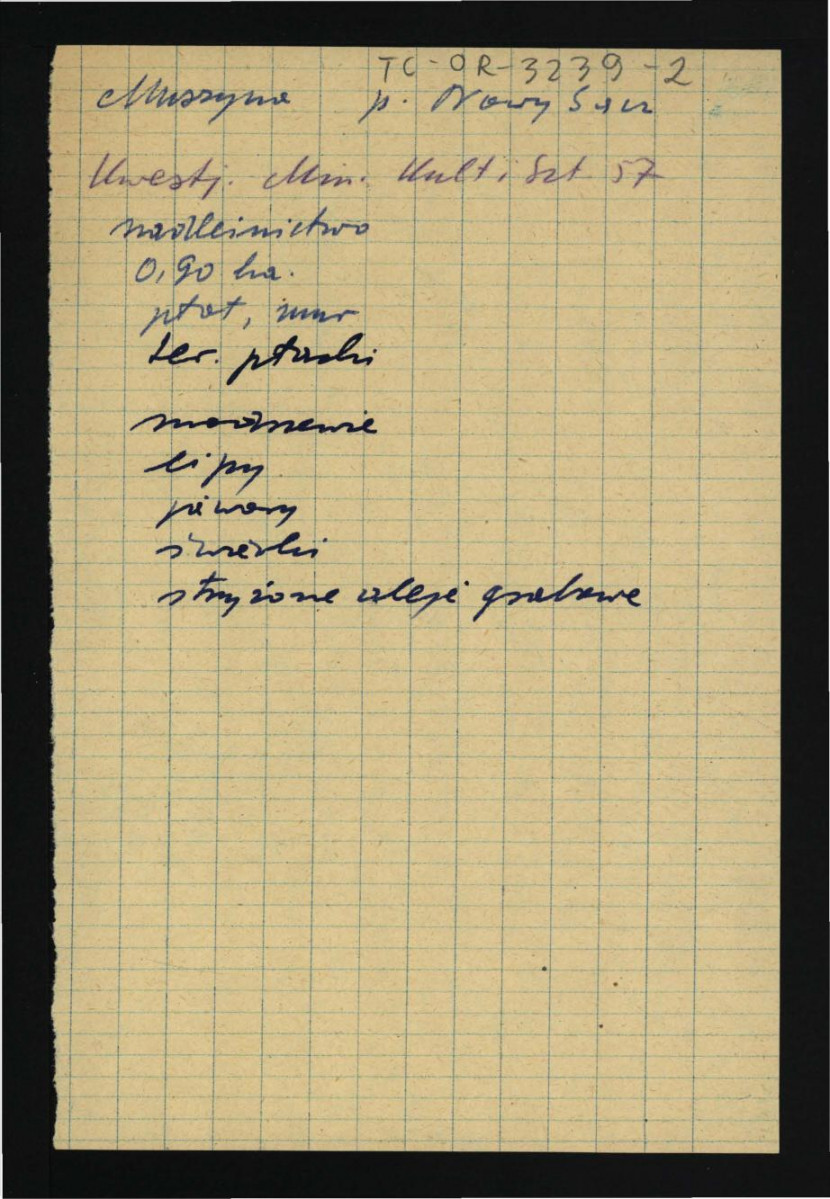 TC-OR-3239-2
Muszyna p. Nowy Sącz
Kwestj. Min. Kult i Szt 57
nadleśnictwo
0,90 ha.
płot, mur
ter. płaski
modrzewie
lipy
jawory
świerki
strzyżone aleje grabowe